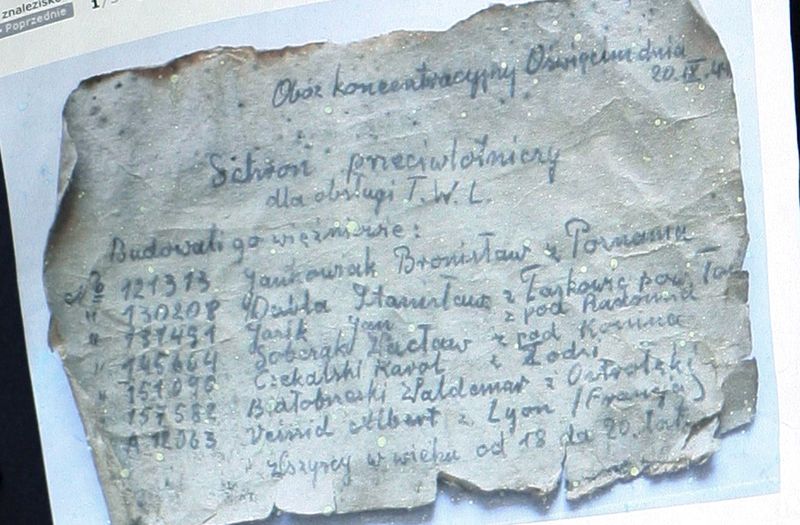 znalezisko
Poprzednie
1/3
Obóz koncentracyjny Oświęcim dnia
20.IX.4
Schron przeciwlotniczy
dla obsługi T.W.L.
Budowali go więźniowie:
No 121313 Jankowiak Bronisław z Poznania
" 130208 Dubla Stanisław z Łaskowic pow. Ta
" 131491 Jasik Jan z pod Radomia
" 145664 Sobczak Wacław z pod Konina
" 151090 Czekalski Karol z Łodzi
" 157582 Białobrzeski Waldemar z Ostrołęki
A 12063 Veissid Albert z Lyon (Francja)
Wszyscy w wieku od 18 do 20. lat.